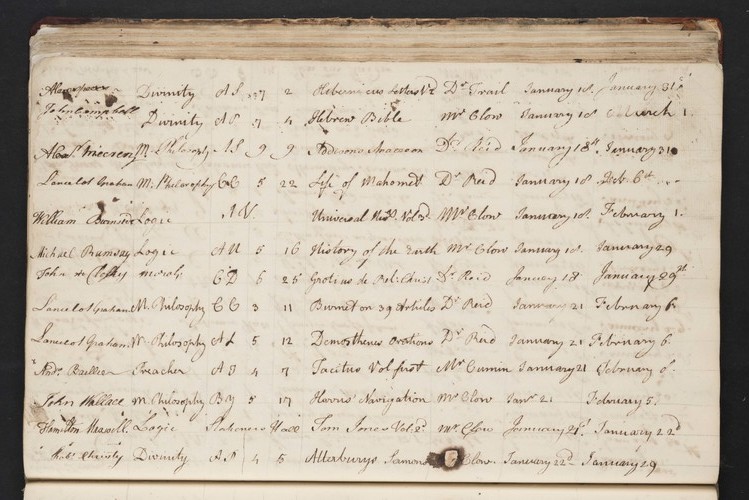 Divinity A S 2 Hibernicus Letters V2 Dr Trail January 18. January 31st
John Campbell Divinity A S 7 4 Hebrew Bible Mr Clow January 18 March 1.
M. Philosophy A S 9 9 Addisons Dr Reid January 18th January 31
Lancelot Graham M. Philosophy CC 5 22 Life of Mahomet Dr Reid January 18. Feb 6th
William Logic A N. Universal Hisy. Vol 3d. Mr Clow January 18. February 1.
Michael Ramsay Logic A U 5 16 History of the Earth Mr Clow January 18. January 29
John C D 6 25 Grotius de Dr Reid January 18 January 29th
Lancelot Graham M. Philosophy CC 3 11 Burnet on 39 Articles Dr Reid January 21 February 6
Lancelot Graham M. Philosophy A L 5 12 Demosthenes Orations Dr Reid January 21 February 6.
Andw. Preacher A 4 7 Tacitus Vol first Mr Cumin January 21 February 6.
John Wallace M. Philosophy B 5 17 Navigation Mr Clow Janr 21 February 5.
Hamilton Logic Stationers Hall Tom Jones Vol 2d. Mr Clow January 21. January 22d
Robt Christy Divinity A S 4 5 Atterburys Sermons Clow. January 22d. January 29